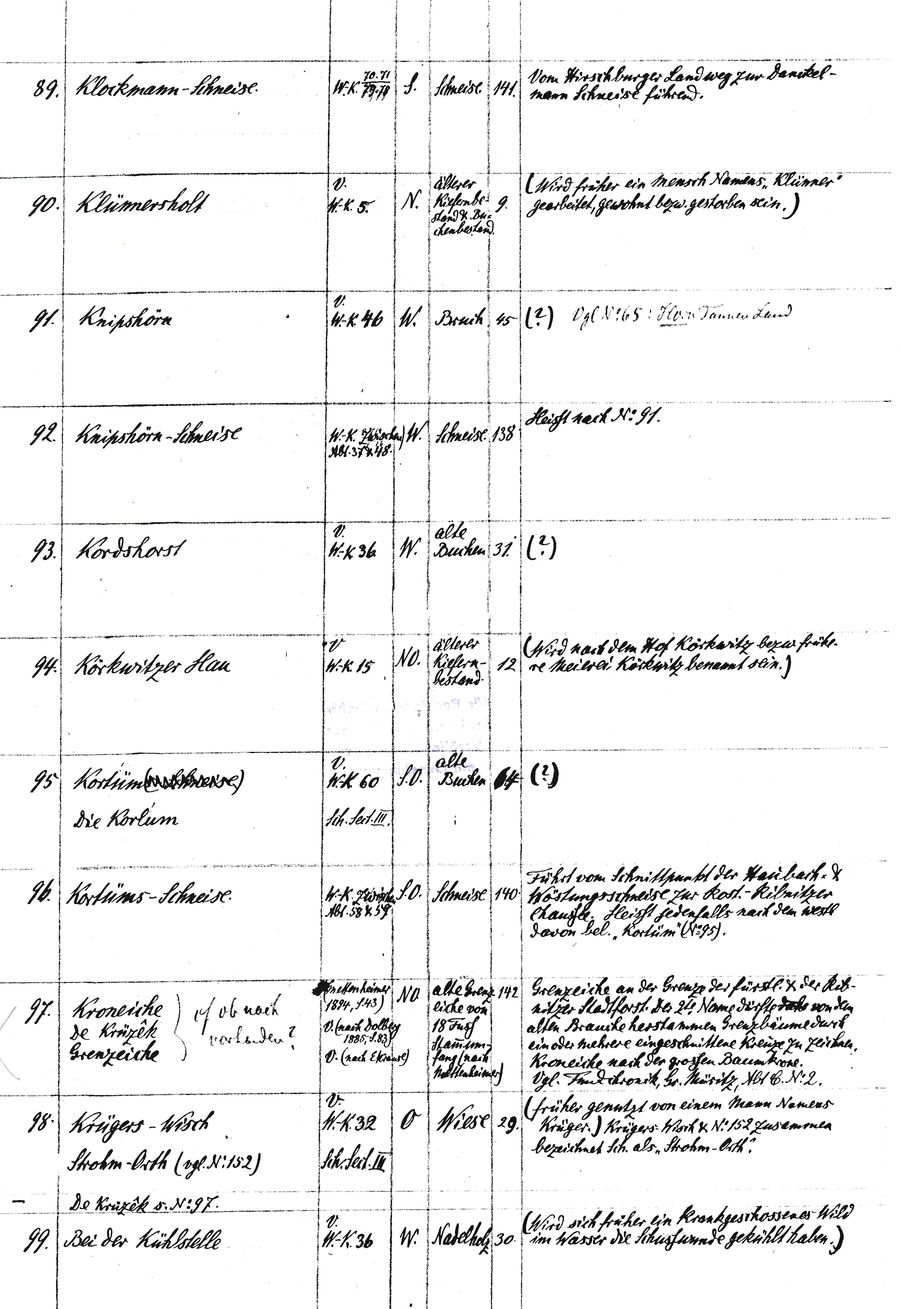 89. Klockmann-Schneise. W-K 70.71 / 78.79 S. Schneise 141. Vom Hirschburger Landweg zur Danckel-
mann Schneise führend.
90. Klünnersholt V. W-K 5. N. älterer Kiefernbe-stand & Bu-chenbestand. 9. (Wird früher ein Mensch Namens „Klünner"
gearbeitet, gewohnt bezw. gestorben sein.)
91. Knipshörn V. W-K 46 W. Bruch 45 (?) Vgl N° 65: Horn Tannen Land
92. Knipshörn-Schneise W-K. Zwischen Abt. 37 & 48. W. Schneise 138 Heißt nach N° 91.
93. Kordshorst V. W-K 36 W. alte Buchen 31 (?)
94. Körkwitzer Hau V W-K 15 NO. älterer Kiefern-bestand 12 (Wird nach dem Hof Körkwitz bezw. frühe-
re Meierei Körkwitz benannt sein.)
95 Kortüm V. W-K 60 S.O. alte Buchen 64 (?)
Die Kortüm Sch. Sect. III.
96. Kortüms-Schneise. W-K. Zwischen Abt. 58 & 59 S.O. Schneise 140 Führt vom Schnittpunkt der Haubach- &
Wöstungsschneise zur Rost.-Ribnitzer
Chaussee. Heißt jedenfalls nach dem westl
davon bel. „Kortüm" (N° 95).
97. Kroneiche
De Krüzêk
Grenzeiche
cf ob noch
vorhanden?
(Knettenheimer
1894, S.43)
V. (nach Dolberg
1885, S.83)
V. (nach E Krause)
NO
alte Grenz
eiche von
18 Fuß
Stammum-
fang (nach
Knettenheimer)
142
Grenzeiche an der Grenze der fürstl. & der Rib-
nitzer Stadtforst. Der 2te Name dürfte von dem
alten Brauche herstammen Grenzbäume durch
ein oder mehrere eingeschnittene Kreuze zu zeichen.
Kroneiche nach der großen Baumkrone.
Vgl. Fundchronik, Gr. Müritz, Abt C. N° 2.
98. Krügers-Wisch V. W-K 32 O Wiese 29. (früher genutzt von einem Mann Namens
Krüger.) Krügers Wisch & N° 152 zusammen
Strohm-Orth (vgl. N° 152) Sch. Sect. III bezeichnet Sch. als „Strohm-Orth".
— De Krüzêk s. N° 97.
99. Bei der Kühlstelle V. W-K. 36 W. Nadelholz 30 (Wird sich früher ein krankgeschossenes Wild
im Wasser die Schußwunde gekühlt haben.)